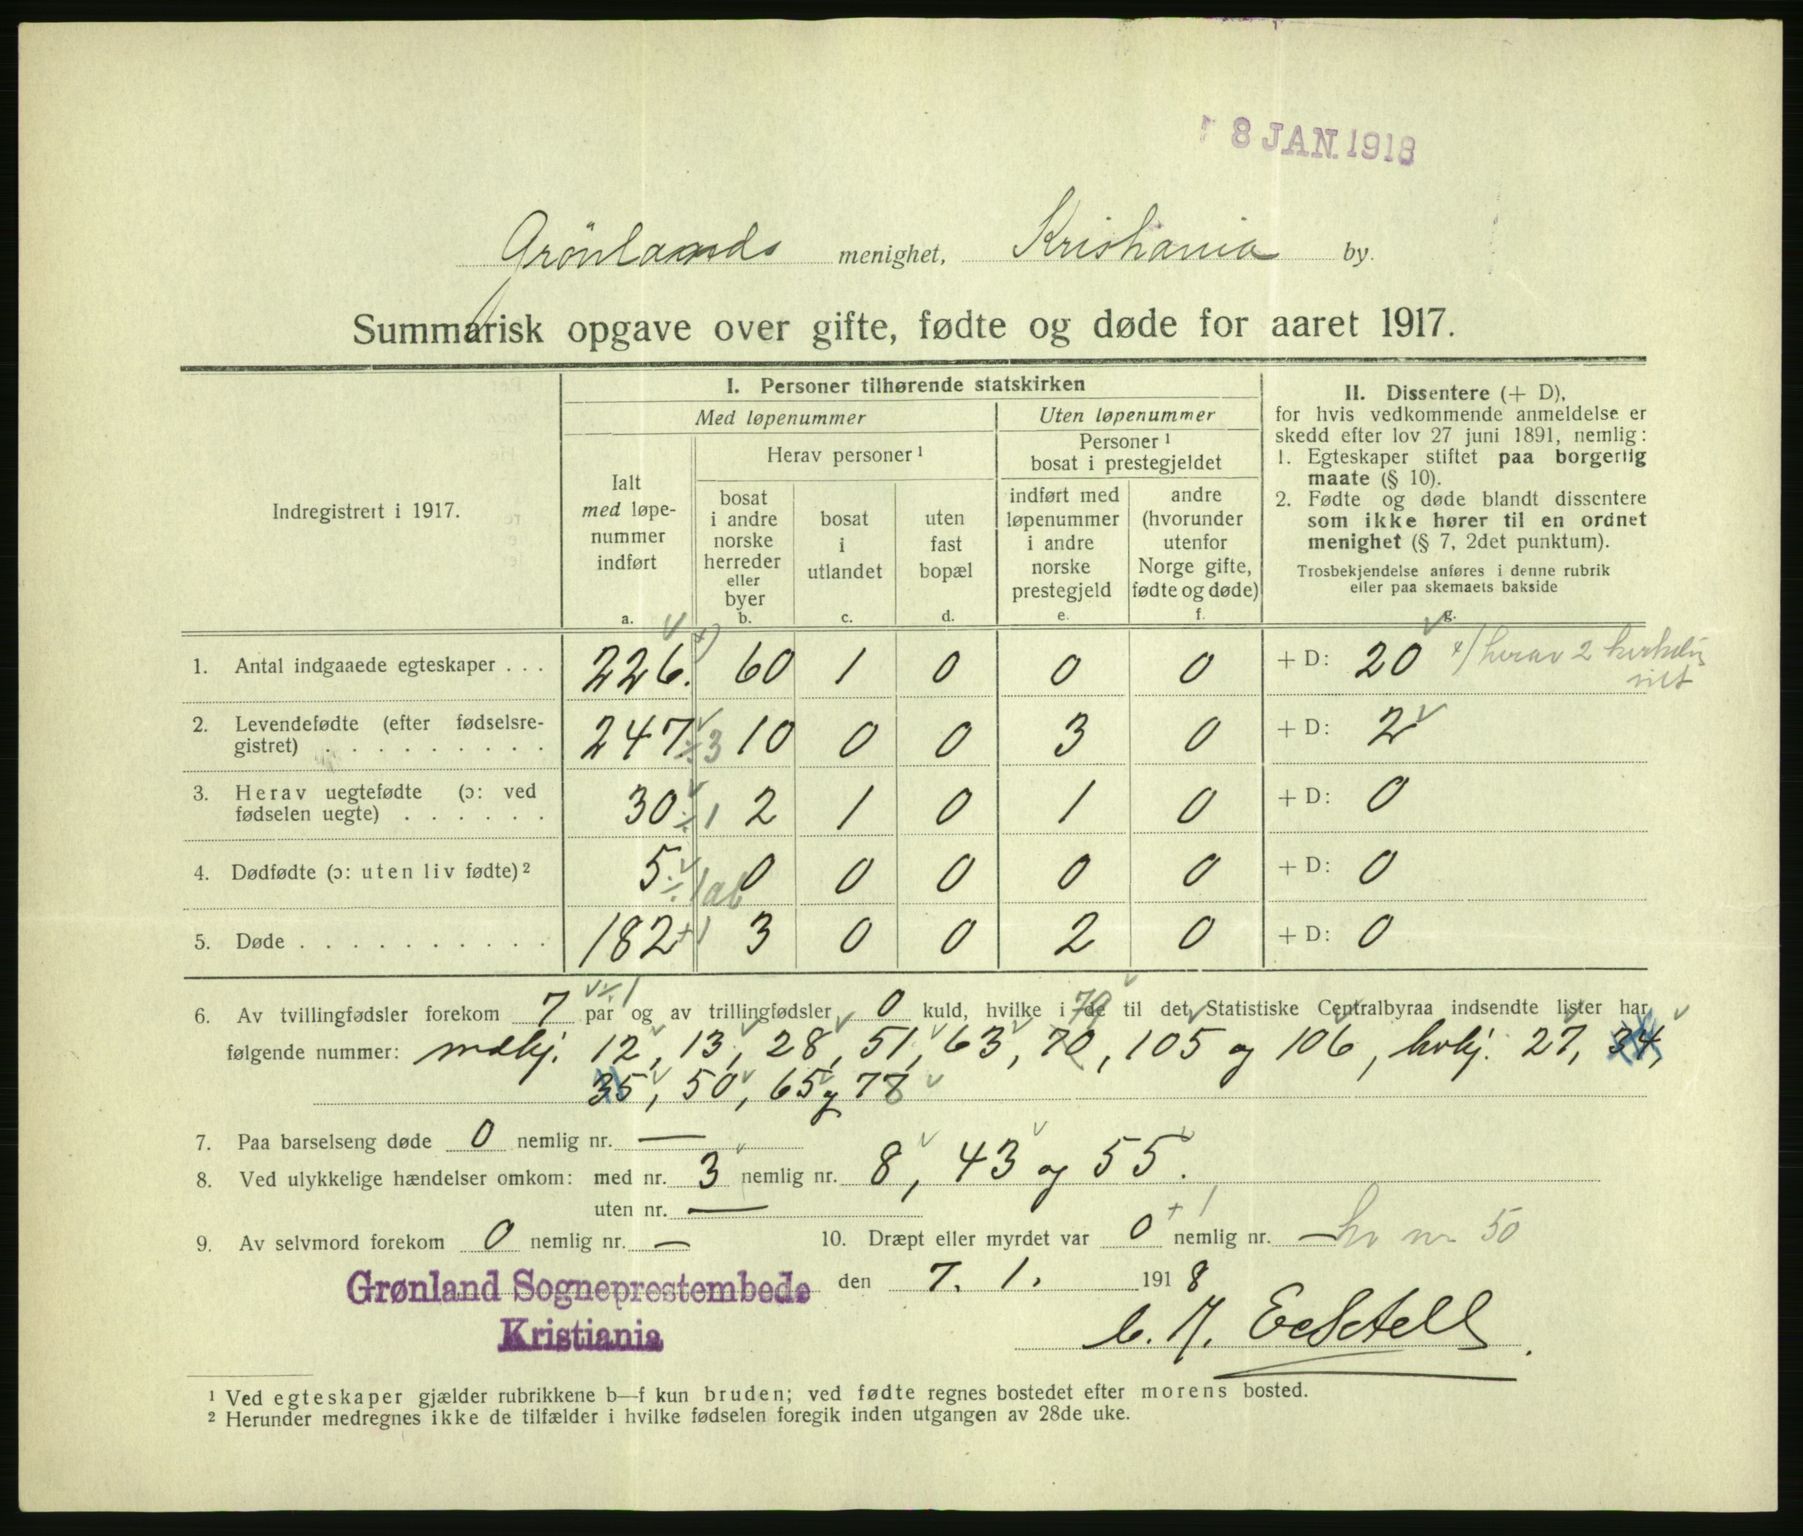 8 JAN. 1918
Grönlands menighet, Kristiania by.
Summarisk opgave over gifte, fødte og døde for aaret 1917.
Indregistrert i 1917.
I. Personer tilhørende statskirken
Med løpenummer
Uten løpenummer
Ialt
med løpe-
nummer
indført
a.
Herav personer ¹
bosat
i andre
norske
herreder
eller
byer
b.
bosat
i
utlandet
c.
uten
fast
bopæl
d.
Personer ¹
bosat i prestegjeldet
indført med
løpenummer
i andre
norske
prestegjeld
e.
andre
(hvorunder
utenfor
Norge gifte,
fødte og døde)
f.
II. Dissentere (+ D),
for hvis vedkommende anmeldelse er
skedd efter lov 27 juni 1891, nemlig:
1. Egteskaper stiftet paa borgerlig
maate (§ 10).
2. Fødte og døde blandt dissentere
som ikke hører til en ordnet
menighet (§ 7, 2det punktum).
Trosbekjendelse anføres i denne rubrik
eller paa skemaets bakside
g.
1. Antal indgaaede egteskaper . . . 226. +) 60 1 0 0 0 + D: 20 +) herav 2
2. Levendefødte (efter fødselsre-
gistret) . . . . . . . . . 247 ÷3 10 0 0 3 0 + D: 2
3. Herav uegtefødte (ɔ: ved
fødselen uegte) . . . . . . 30 ÷1 2 1 0 1 0 + D: 0
4. Dødfødte (ɔ: uten liv fødte) ² 5 ÷1 ab 0 0 0 0 0 + D: 0
5. Døde . . . . . . . . . . 182 +1 3 0 0 2 0 + D: 0
6. Av tvillingfødsler forekom 7 ÷1 par og av trillingfødsler 0 kuld, hvilke i de til det Statistiske Centralbyraa indsendte lister har
følgende nummer: mdkj. 12, 13, 28, 51, 63, 70, 105 og 106, kvkj. 27, 34,
35, 50, 65 og 78
7. Paa barselseng døde 0 nemlig nr. —
8. Ved ulykkelige hændelser omkom: med nr. 3 nemlig nr. 8, 43 og 55.
uten nr. —
9. Av selvmord forekom 0 nemlig nr. — 10. Dræpt eller myrdet var 0 +1 nemlig nr. — kv nr 50
Grønland Sogneprestembede den 7. 1. 1918
Kristiania
¹ Ved egteskaper gjælder rubrikkene b—f kun bruden; ved fødte regnes bostedet efter morens bosted.
² Herunder medregnes ikke de tilfælder i hvilke fødselen foregik inden utgangen av 28de uke.